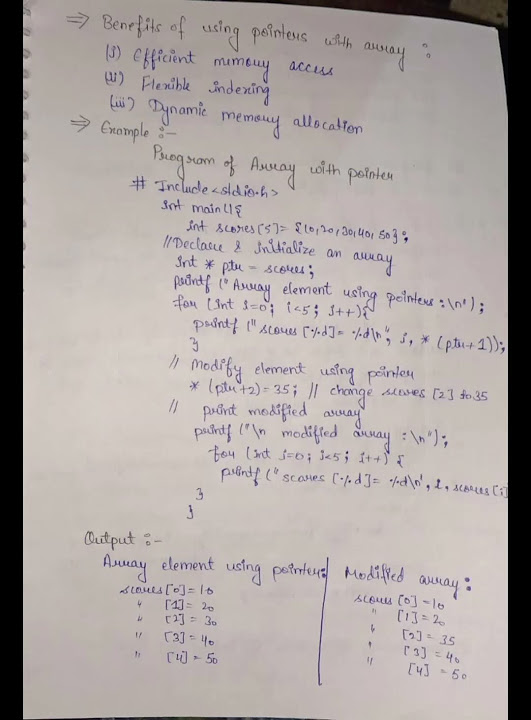 ⇒ Benefits of using pointers with array :
(i) Efficient mimory access
(ii) Flexible indexing
(iii) Dynamic memory allocation
⇒ Example :-
Program of Array with pointer
# Include <stdio.h>
int main(){
int scores[5]= {10,20,30,40,50};
//Declare & initialize an array
int * ptr = scores;
printf ("Array element using pointers :\n");
for (int i=0; i<5; i++){
printf (" scores [%d]= %d\n", i, * (ptr+1));
}
// Modify element using pointer
* (ptr+2)=35; // change scores [2] to 35
// print modified array
printf ("\n modified array :\n");
for (int i=0; i<5; i++) {
printf (" scores [%d]= %d\n', i, scores[i]
}
}
Output :-
Array element using pointer:
scores[0]=10
" [1]=20
" [2]=30
" [3]=40
" [4]=50
Modified array:
scores [0]=10
" [1]=20
" [2]=35
" [3]=40
" [4]=50